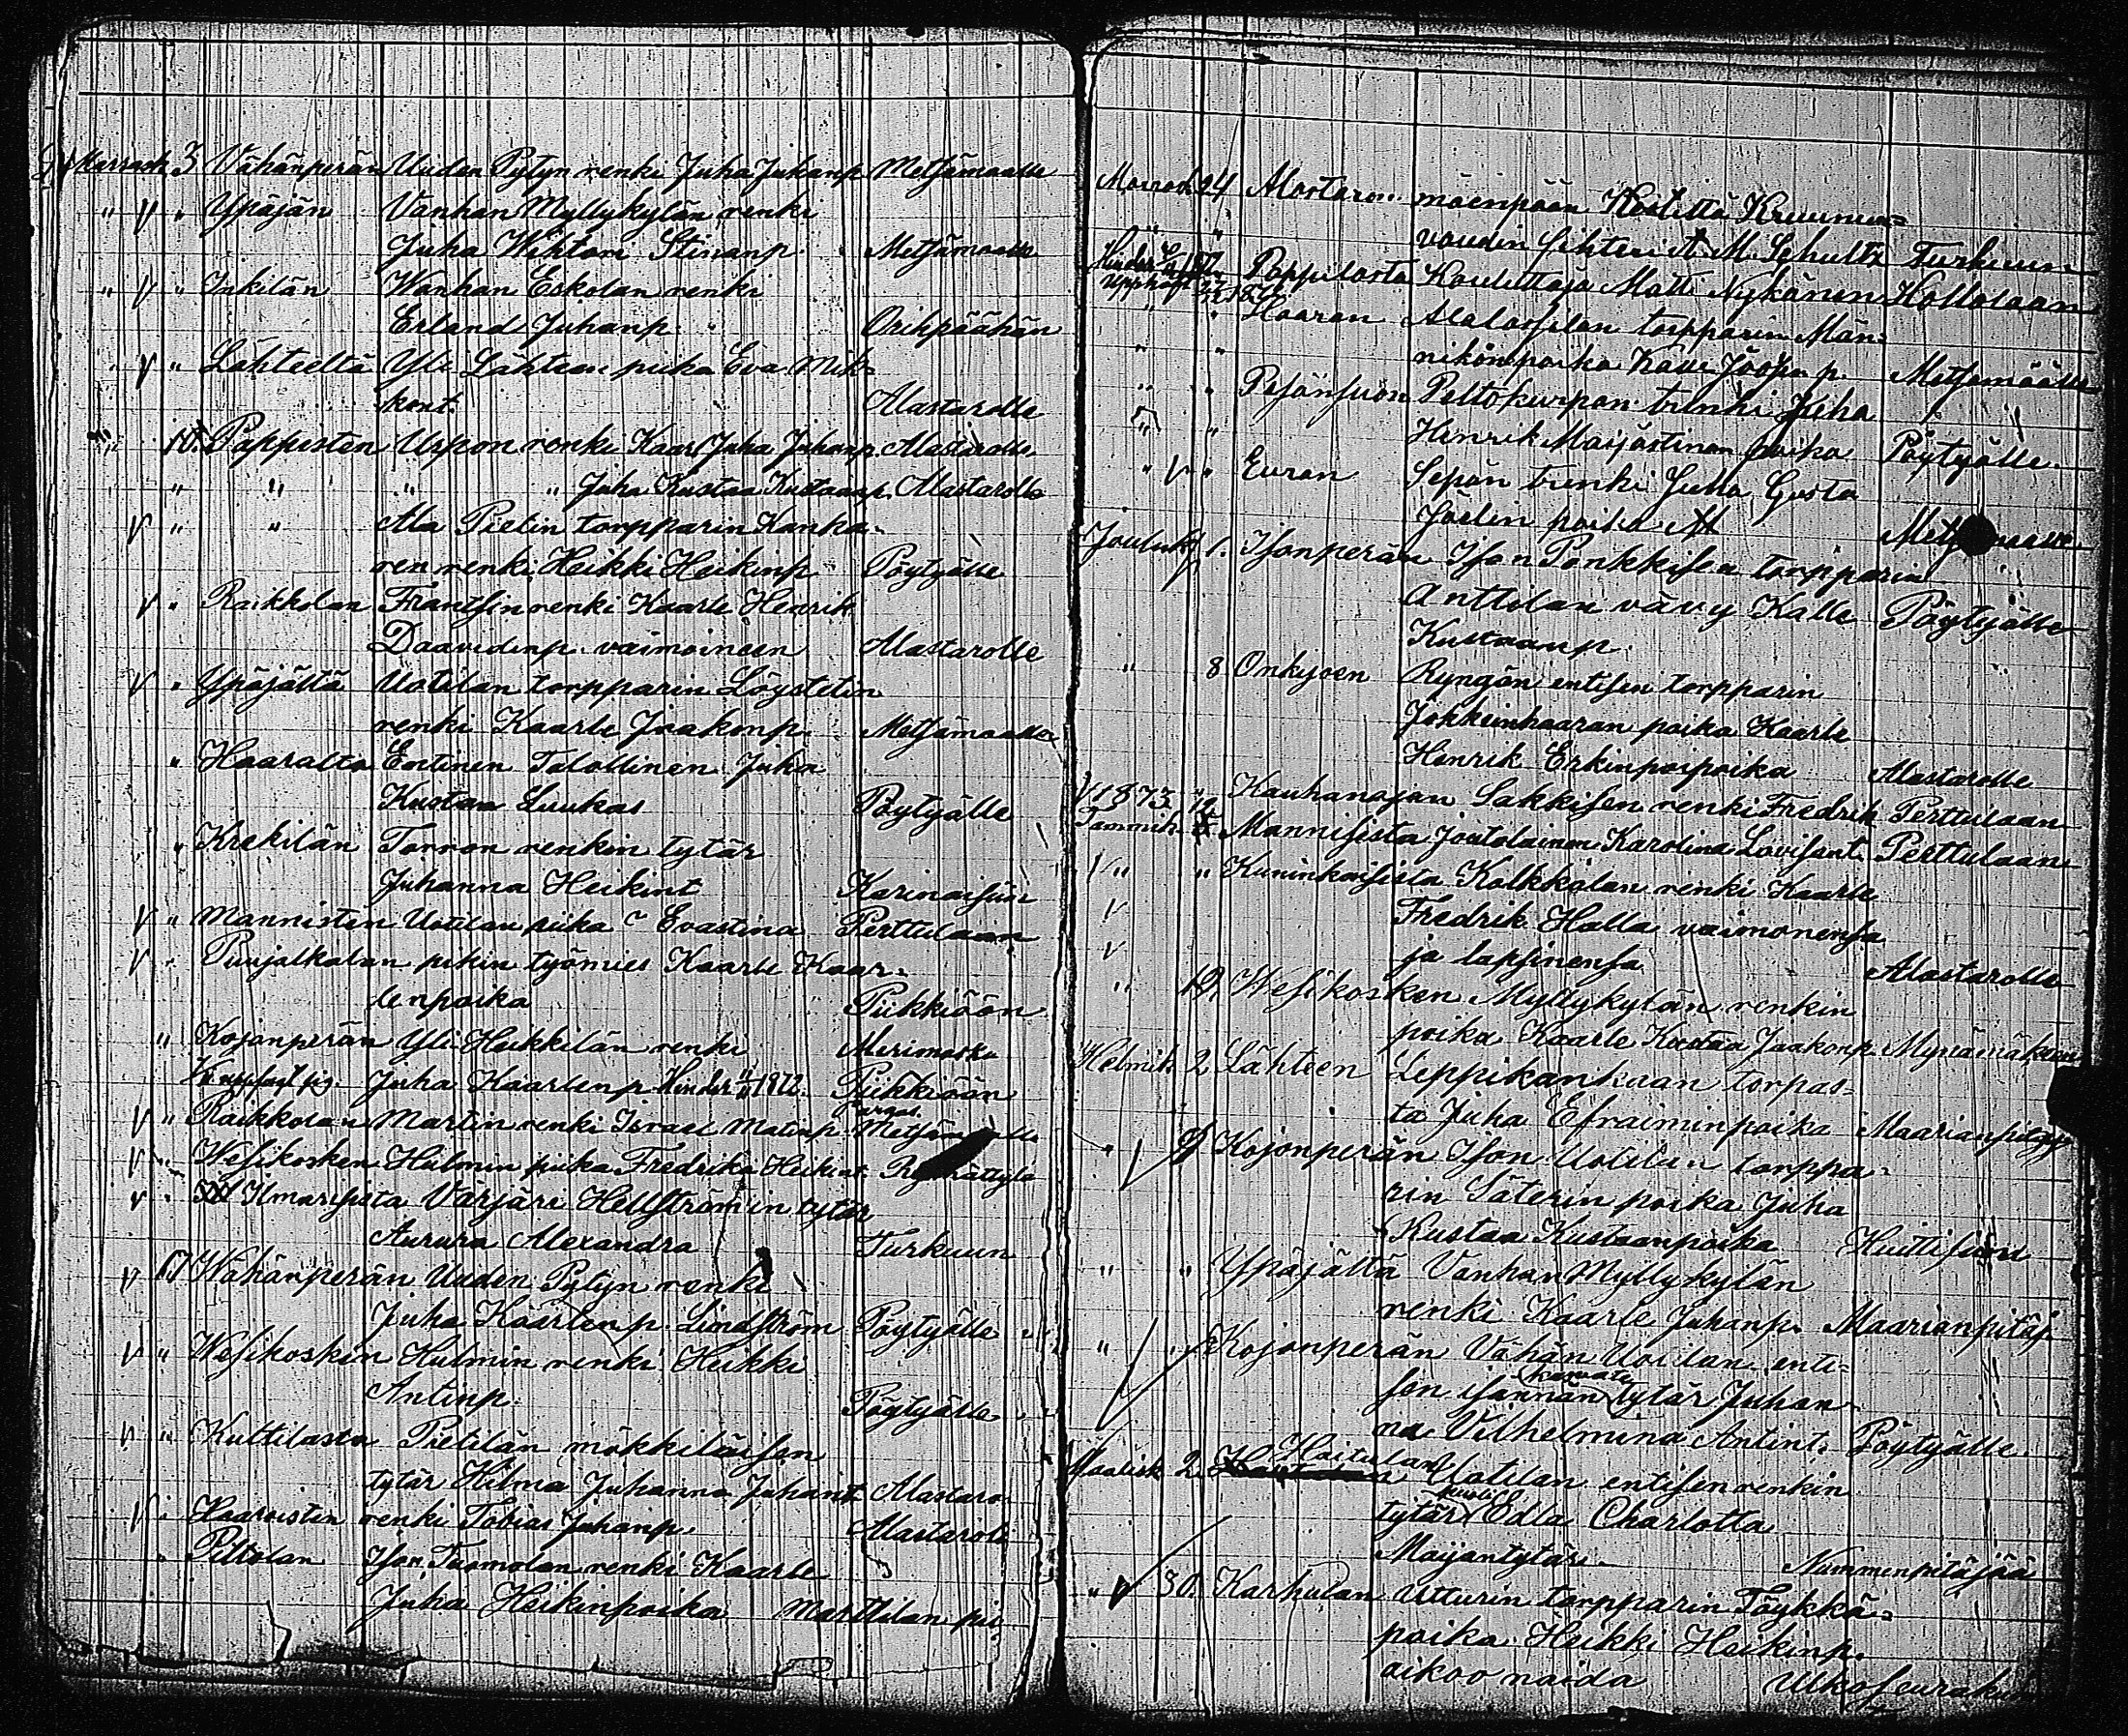 Marrask 3 Vähänperän Uuden Pytyn renki Juha Juhanp Metsämaalle
" V " Ypäjän Vanhan Myllykylän renki
Juha Wihtori Stinanp. Metsämaalle
" V " Inkilän Wanhan Eskolan renki
Erland Juhanp. Orihpäähän
V " Lähteeltä Yli Lähteen piika Eva Mik-
kont. Alastarolle
" 10. Pappisten Uspon renki Kaarl Juha Juhanp. Alastarolle.
" " " " Juha Kustaa Kustaanp. Alastarolle
V " " Ala Pietin torpparin Kanka-
ren renki Heikki Heikinp Pöytyälle
V " Raikkolan Frantsin renki Kaarle Henrik
Daavidinp. vaimoineen Alastarolle
V " Ypäjältä Uotilan torpparin Löystetin
renki Kaarle Jaakonp. Metsämaalle
" Haaralta Entinen Talollinen Juha
Kustaa Luukas Pöytyälle
" Krekilän Torron renkin tytär
Juhanna Heikint Karinaisiin
V " Mannisten Uotilan piika Evastina Perttulaan
V " Puujalkalan pitin työmies Kaarle Kaar-
lenpoika Piikkiöön
" Kojonperän Yli Heikkilän renki Merimasku
Juha Kaarlenp. Hinder 1872. Piikkiöön
V " Raikkolan Martin renki Israel Matinp.
V " Wesikosken Hulmin piika Fredrika Heikint.
V " Ilmarisista Värjäri Hellströmin tytär
Aurura Alexandra Turkuun
V 17 Wähänperän Uuden Pytyn renki
Juha Kaarlenp. Lindström Pöytyälle
V " Wesikosken Hulmin renki Heikki
Antinp. Pöytyälle
V " Kuttilasta Pietilän mökkiläisen
tytär Hilma Juhanna Juhanit Alastaro
V " Haaroisten renki Tobias Juhanp. Alastarolle
" Piltolan Ison Tuomolan renki Kaarle
Juha Heikinpoika Marttilan pit.
Marrask 24 Alastaron mäenpään Kruunun-
" " voudin sihteri A. M. Schultz Turkuun
Hinder Pappilasta Koulettaja Matti Nykänen Hollolaan
" Haaran Alatassilan torpparin Män-
" " nikön poika Kalle Jöös p. Metsämäälle
" " Pesänsuon Peltokurpan trenki Juha
" " Henrik Maijastinan poika Pöytyälle.
" V " Euran Sepän trenki Juha Gusta
Joelin poika
Jouluk 1. Isonperän Ison Ponkkisen torpparin
Anttilan vävy Kalle Pöytyälle
Kustaanp.
" 8 Onkijoen Ryngön entisen torpparin
Jokkeinhaaran poika Kaarle
Henrik Erkinpoipoika Alastarolle
1873 " Kauhanojan Sakkisen renki Fredrik Perttulaan
Tammik. 12 Mannisista joutolainen Karolina Lovisant. Perttulaan
V " " Kuninkaisista Kolkkalan renki Kaarle
V Fredrik Halla vaimonensa
V ja lapsinensa Alastarolle
" 19. Wesikosken Myllykylän renkin
poika Kaarle Kustaa Jaakonp. Mynämäkeen
Helmik 2 Lähteen Leppikankaan torpas-
ta Juha Efraiminpoika Maarianpitäj
" V 9 Kojonperän Ison Uotilan torppa-
rin Säterin poika Juha
Kustaa Kustaanpoika Huittisiin
" " Ypäjältä Vanhan Myllykylän
renki Kaarle Juhanp. Maarianpitäj
" " Kojonperän Vähän Uotilan enti-
sen isännän kasvate tytär Juhan-
na Vilhelmina Antint. Pöytyälle.
Maalisk 2. Haitulan Uotilan entisen renkin
tytär puoli Edla Charlotta
Maijantytär. Nummenpitäjää
" V 30. Karhulan Utturin torpparin Töykkä-
poika Heikki Heikinp.
aikoo naida Ulkoseurak